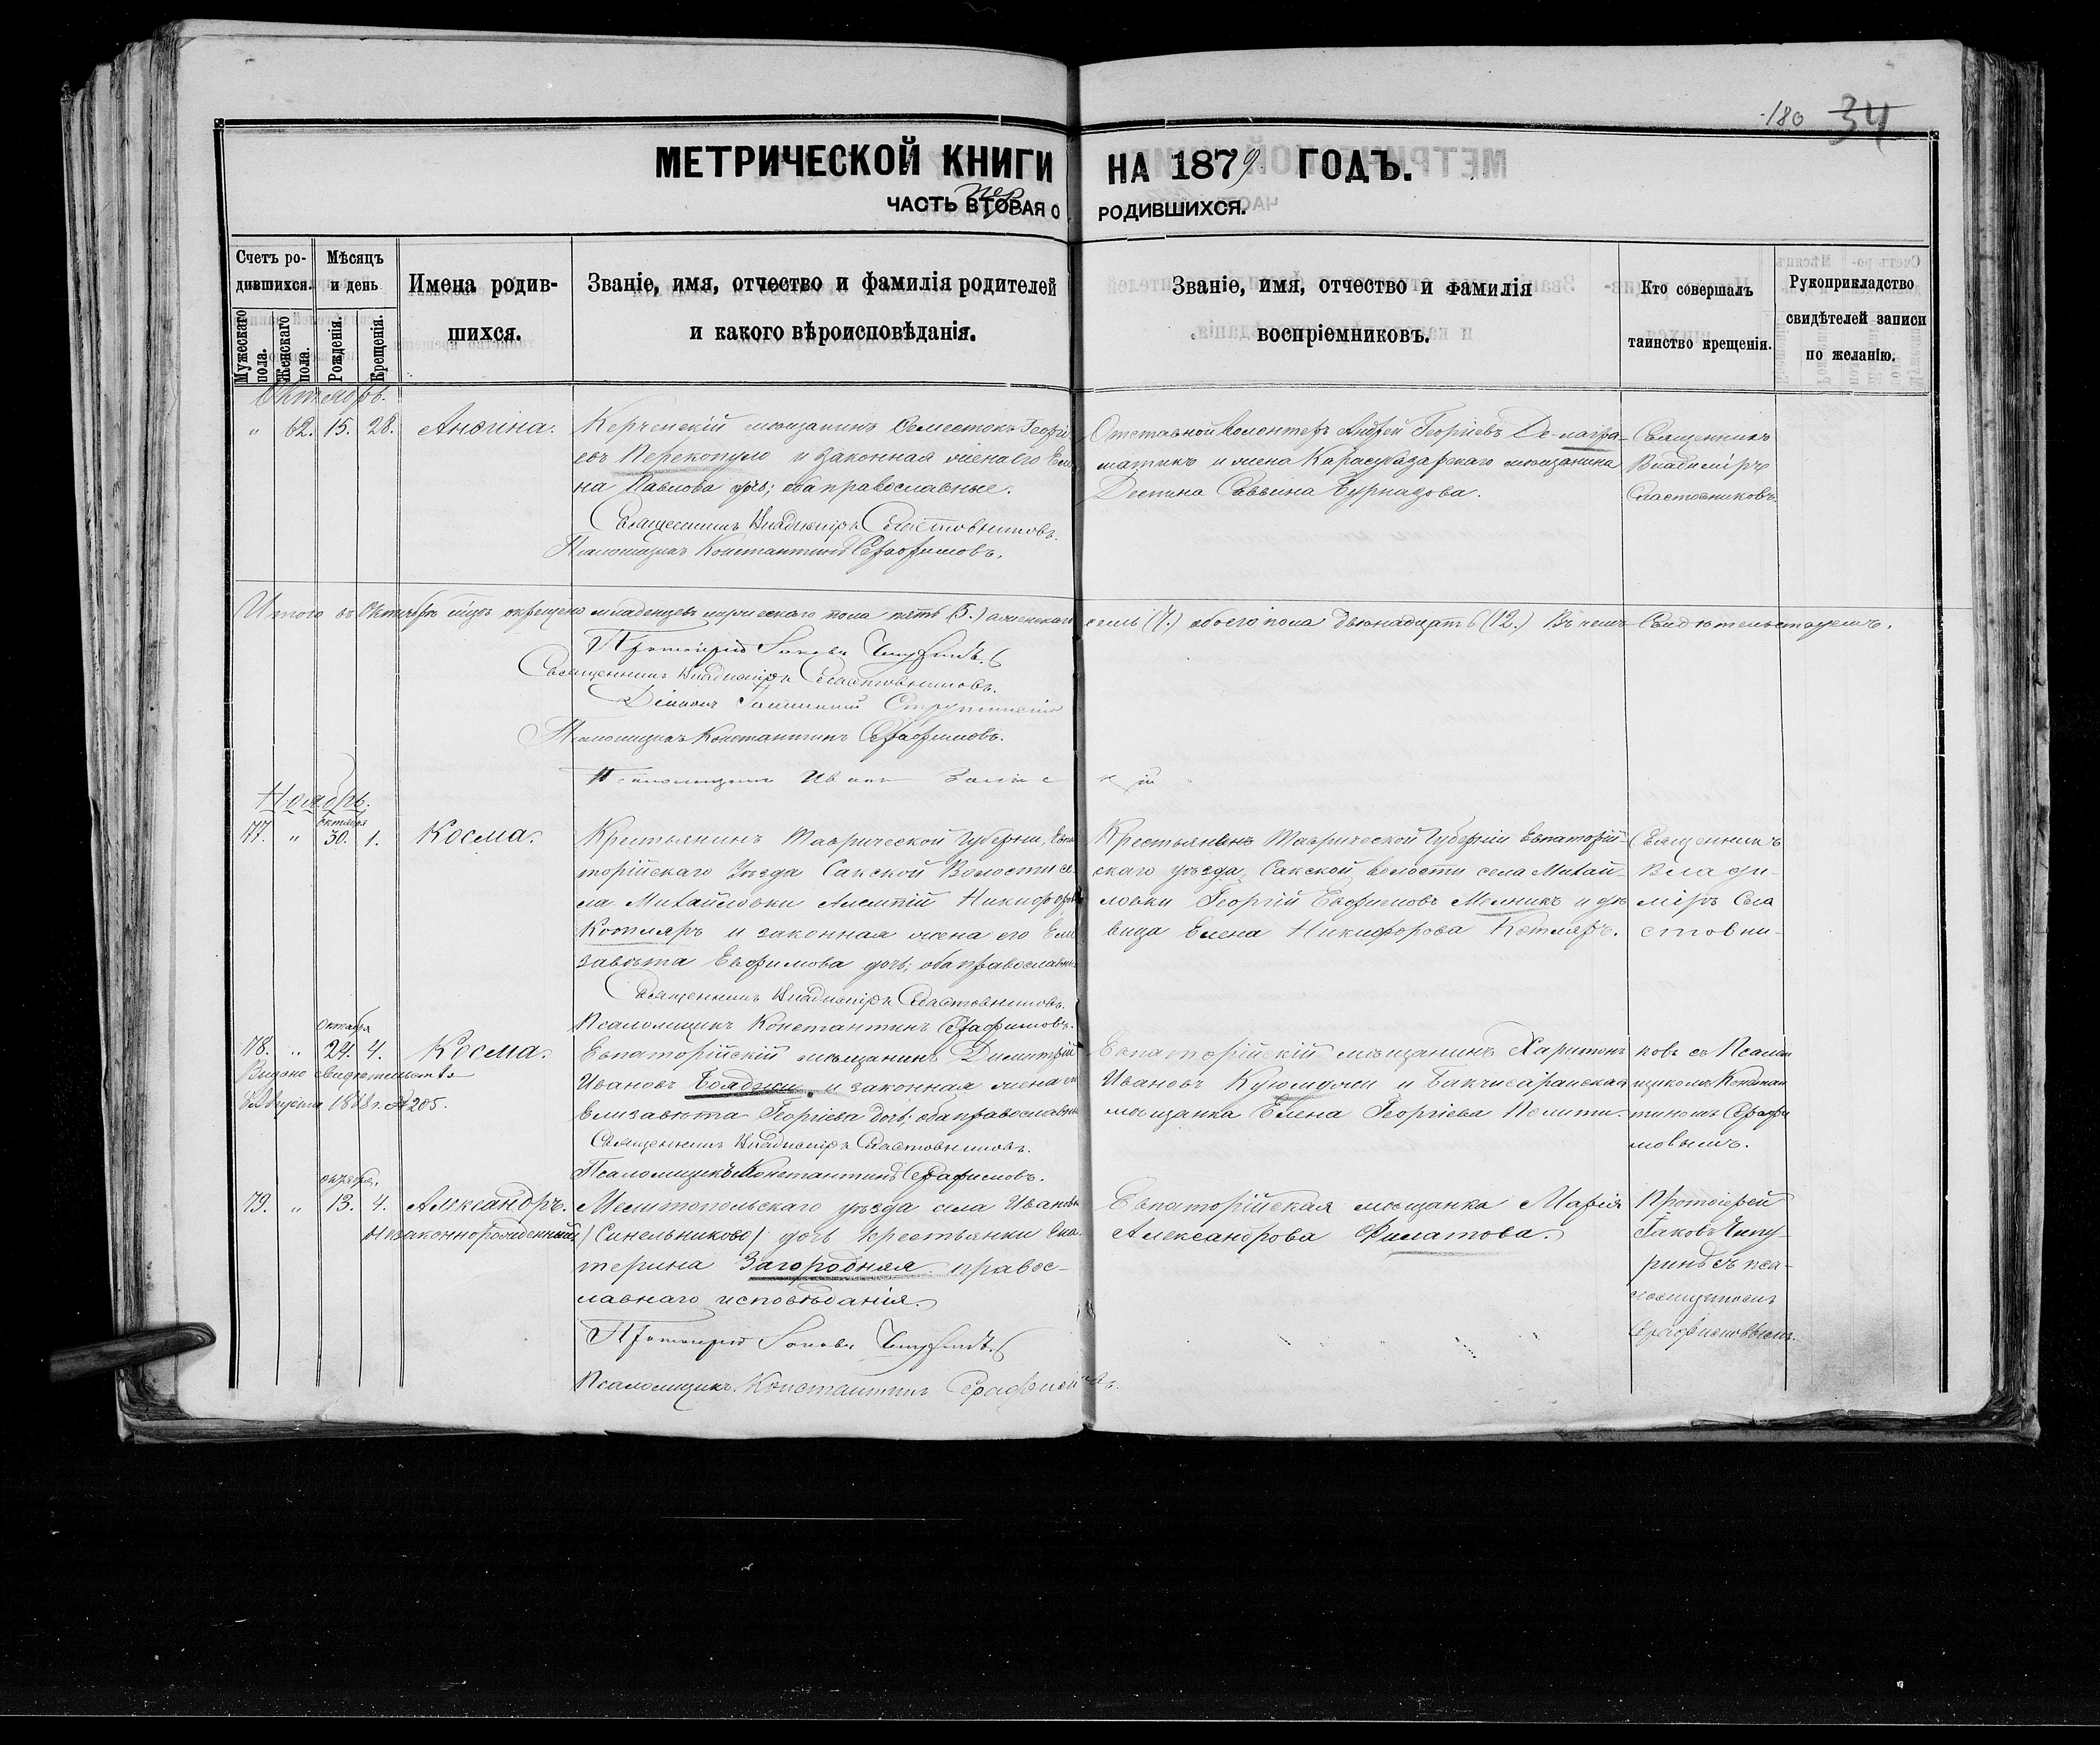 180 34
МЕТРИЧЕСКОЙ КНИГИ НА 1879 ГОДЪ.
пер
ЧАСТЬ ВТОРАЯ О РОДИВШИХСЯ.
Счетъ ро-
дившихся.
Мужескаго пола.
Женскаго пола.
Мѣсяцъ
и день
Рожденія.
Крещенія.
Имена родив-
шихся.
Званіе, имя, отчество и фамилія родителей
и какого вѣроисповѣданія.
Званіе, имя, отчество и фамилія
воспріемниковъ.
Кто совершалъ
таинство крещенія.
Рукоприкладство
свидѣтелей записи
по желанію.
Октябрь.
" 62. 15. 28. Анѳина.
Керченскій мѣщанинъ Георгі-
евъ Перекопуло и законная жена его Еле
на Павлова дочь; оба православные.
Священникъ Владиміръ Сластовниковъ.
Псаломщикъ Константинъ Серафимовъ.
Отставной волонтеръ Андрей Георгіевъ
матикъ и жена Карасубазарскаго мѣщанина
Деспина Саввина
Священникъ
Владиміръ
Сластовниковъ
Итого въ Октябрѣ мѣсяцѣ окрещено младенцевъ мужескаго пола пять (5.) а женскаго семь (7.) обоего пола двѣнадцать (12.) Въ чемъ Свидѣтельствуемъ.
Протоіерей Іаковъ Чепуринъ.
Священникъ Владиміръ Сластовниковъ.
Діаконъ
Псаломщикъ Константинъ Серафимовъ.
Псаломщикъ Иванъ
Ноябрь.
Октября
77. " 30. 1. Косма.
Крестьянинъ Таврической Губерніи, Евпа
торійскаго Уѣзда Сакской Волости се-
ла Михайловки Алемпій Никифоровъ
Котляръ и законная жена его Ели
завѣта Евфимова дочь; оба православные
Священникъ Владиміръ Сластовниковъ.
Псаломщикъ Константинъ Серафимовъ.
Крестьянинъ Таврической Губерніи Евпаторій-
скаго уѣзда, Сакской волости села Михай-
ловки Георгій Евфимовъ Мельникъ и дѣ
вица Елена Никифорова Котляръ.
Священникъ
Влади-
міръ Сла
стовни-
Октября
78. " 24. 4. Косма.
Выдано свидѣтельство
Августа 1888 г. № 205.
Евпаторійскій мѣщанинъ Димитрій
Ивановъ Бояджи и законная жена его
Елизавѣта Георгіева дочь; оба православные
Священникъ Владиміръ Сластовниковъ.
Псаломщикъ Константинъ Серафимовъ.
Евпаторійскій мѣщанинъ Харитонъ
Ивановъ Куюмджи и Бакчисарайская
мѣщанка Елена Георгіева Полити.
ковъ съ Псалом
щикомъ Констан
тиномъ Серафи
мовымъ.
октября.
79. " 13. 4. Александръ.
Незаконнорожденный.
Мелитопольскаго уѣзда села Ивановки
(Синельниково) дочь крестьянки Ека-
терина Загородная правос-
лавнаго исповѣданія.
Протоіерей Іаковъ Чепуринъ.
Псаломщикъ Константинъ Серафимовъ.
Евпаторійская мѣщанка Марія
Александрова Филатова.
Протоіерей
Іаковъ Чепу-
ринъ съ пса-
ломщикомъ
Серафимовымъ.